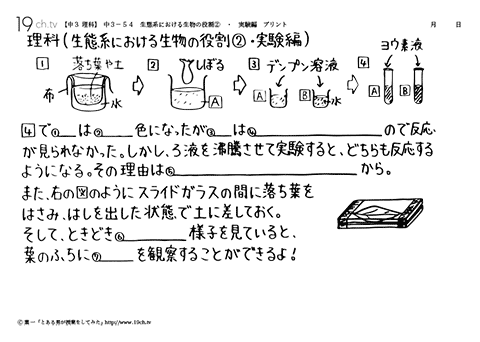 19ch.tv 【中3 理科】 中3-54 生態系における生物の役割② ・ 実験編 プリント 月 日
理科(生態系における生物の役割②・実験編)
ヨウ素液
1 落ち葉や土 2 しぼる 3 デンプン溶液 4
布 水 A A B 水 A B
4で①は②色になったが③は④ので反応
が見られなかった。しかし、ろ液を沸騰させて実験すると、どちらも反応する
ようになる。その理由は⑤から。
また、右の図のようにスライドガラスの間に落ち葉を
はさみ、はしを出した状態で土に差しておく。
そして、ときどき⑥様子を見ていると、
葉のふちに⑦を観察することができるよ!
Ⓒ葉一「とある男が授業をしてみた」http://www.19ch.tv